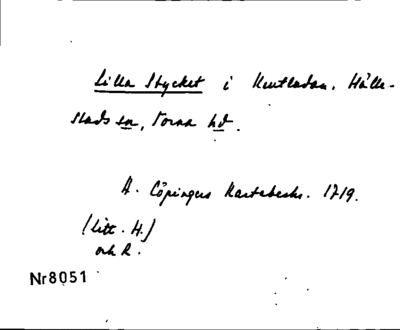 Lilla Stycket i Kentladan. Hälle-
stads sn, Torna hd.
A. Cöpingers Kartebeskr. 1719.
(Litt. H.)
och R.
Nr 8051